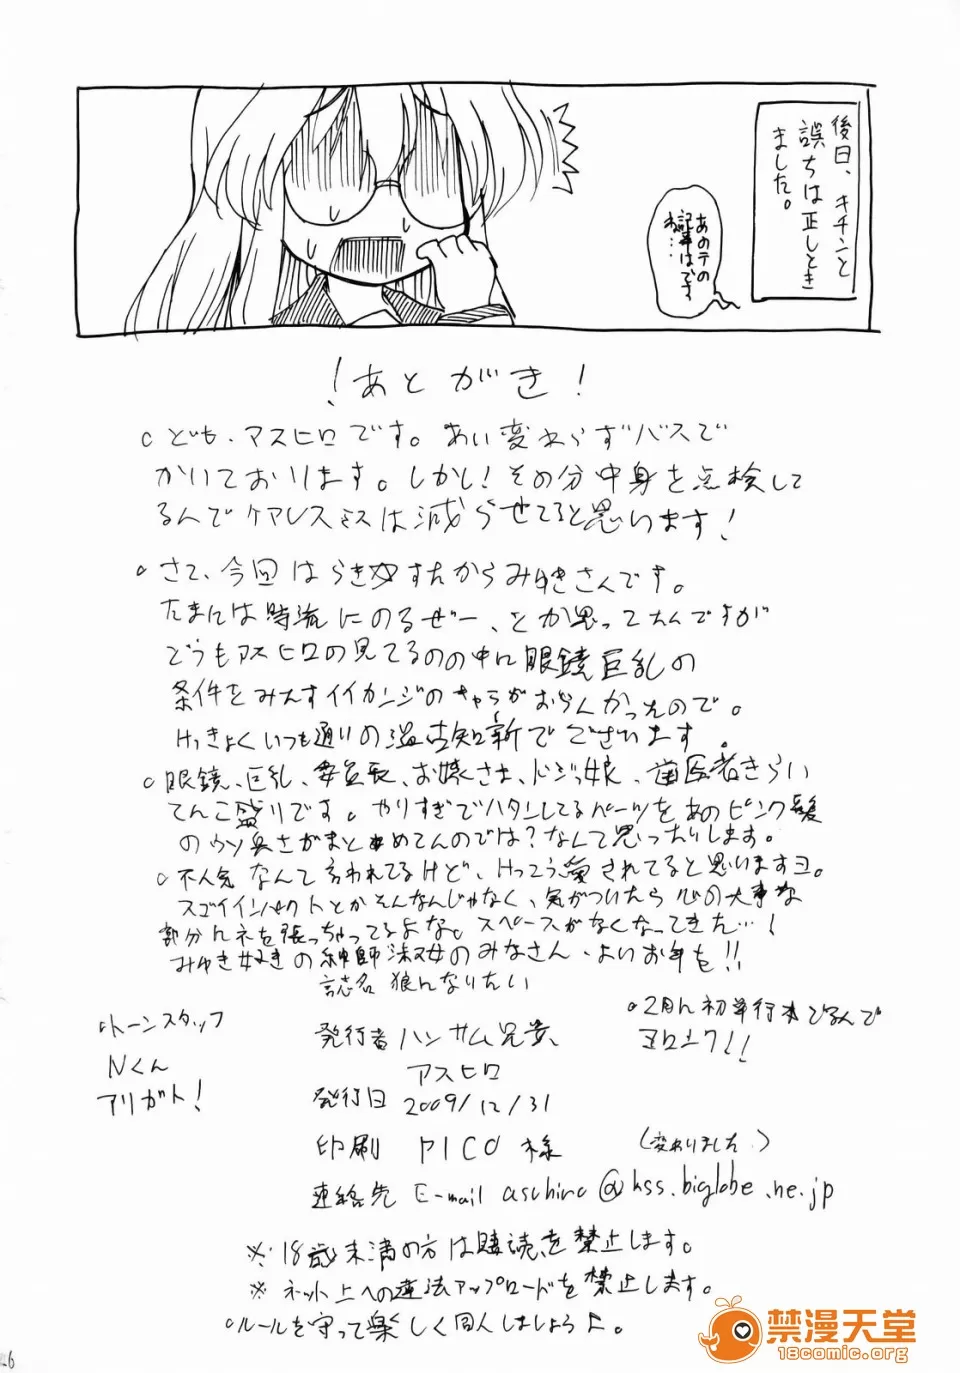 後日、キチンと
誤ちは正しとき
ました。
あのテの
記事はです
ね…
！あとがき！
○ども、アスヒロです。あい変わらずバスで
かいております。しかし！その分中身を点検して
るんでケアレスミスは減らせてると思います！
○さて、今回はらき☆すたからみゆきさんです。
たまには時流にのるぜー、とか思ってたんですが
どうもアスヒロの見てるのの中に眼鏡巨乳の
条件をみたすイイカンジのキャラがおらんかったので。
けっきょくいつも通りの温古知新でございます。
○眼鏡、巨乳、委員長、お嬢さま、ドジっ娘、歯医者きらい
てんこ盛りです。やりすぎでハタンしてるパーツをあのピンク髪
のウソ臭さがまとめてんのでは？なんて思ったりします。
○不人気なんて言われてるけど、けっこう愛されてると思いますヨ。
スゴイインパクトとかそんなんじゃなく、気がついたら心の大事な
部分にネを張っちゃってるよな。スペースがなくなってきた…！
みゆき好きの紳師淑女のみなさん、よいお年を!!
誌名 狼になりたい
○トーンスタッフ
Nくん
アリガト！
発行者 ハンサム兄貴
アスヒロ
発行日 2009/12/31
印刷 PICO様
(変わりました)
連絡先 E-mail asuhiro@kss.biglobe.ne.jp
○2月に初単行本でるんで
ヨロシク!!
※18歳未満の方は購読を禁止します。
※ネット上への違法アップロードを禁止します。
○ルールを守って楽しく同人しましょうよ。
26
禁漫天堂
18comic.org